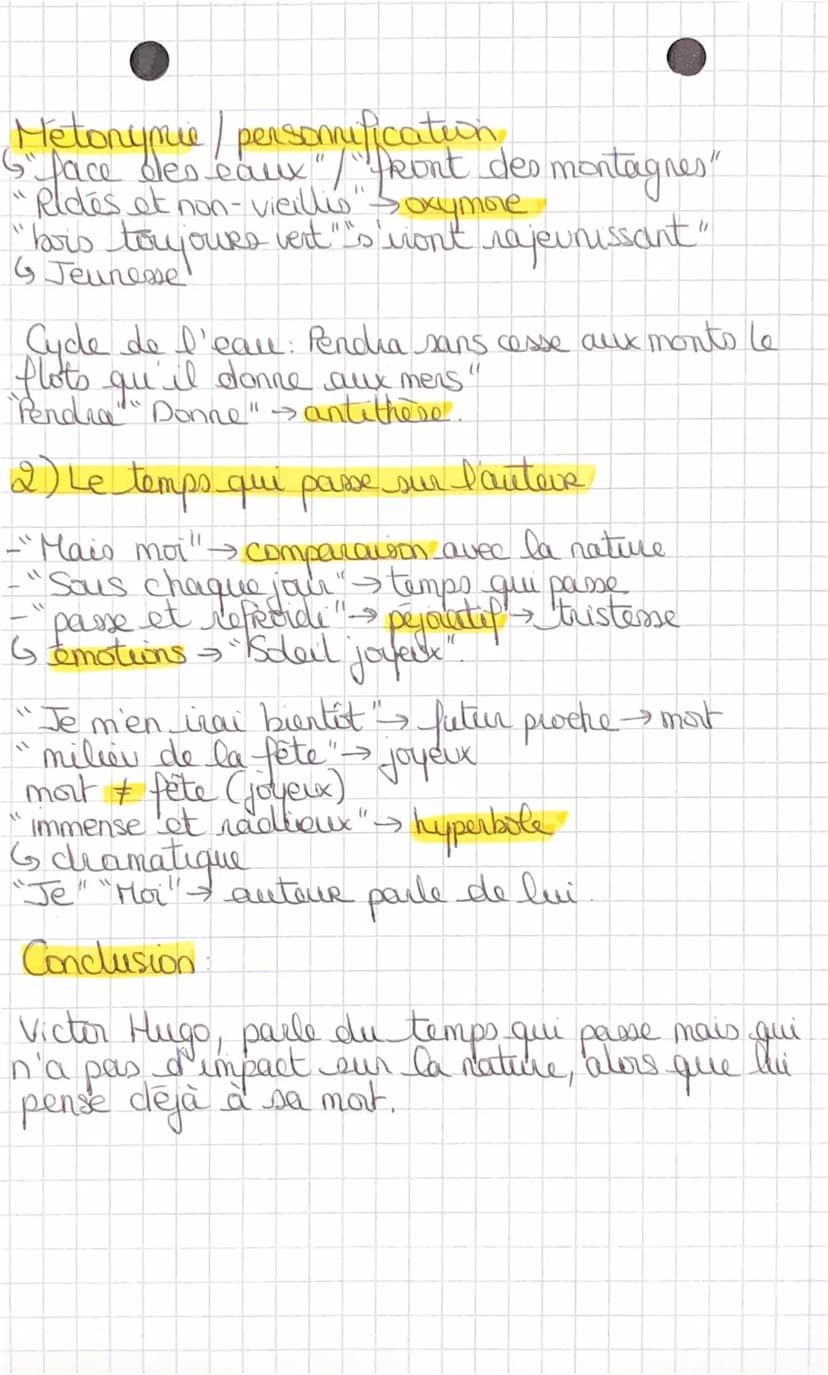 Métonymie / personnification
↳ "face des eaux" / "front des montagnes"
"Ridés et non-vieillis" → oxymore
"bois toujours vert" "s'iront rajeunissant"
↳ Jeunesse
Cycle de l'eau : Pendra sans cesse aux monts le
flots qu'il donne aux mers"
"Pendra" "Donne" → antithèse.
2) Le temps qui passe sur l'auteur
- "Mais moi" → comparaison avec la nature
- "Sous chaque jour" → temps qui passe
- "passe et refroidi" → péjoratif → tristesse
↳ émotions → "Soleil joyeux".
"Je m'en irai bientôt" → futur proche → mort
"milieu de la fête" → joyeux
mort ≠ fête (joyeux)
"immense et radieux" → hyperbole
↳ dramatique
"Je" "Moi" → auteur parle de lui.
Conclusion :
Victor Hugo, parle du temps qui passe mais qui
n'a pas d'impact sur la nature, alors que lui
pense déjà à sa mort.